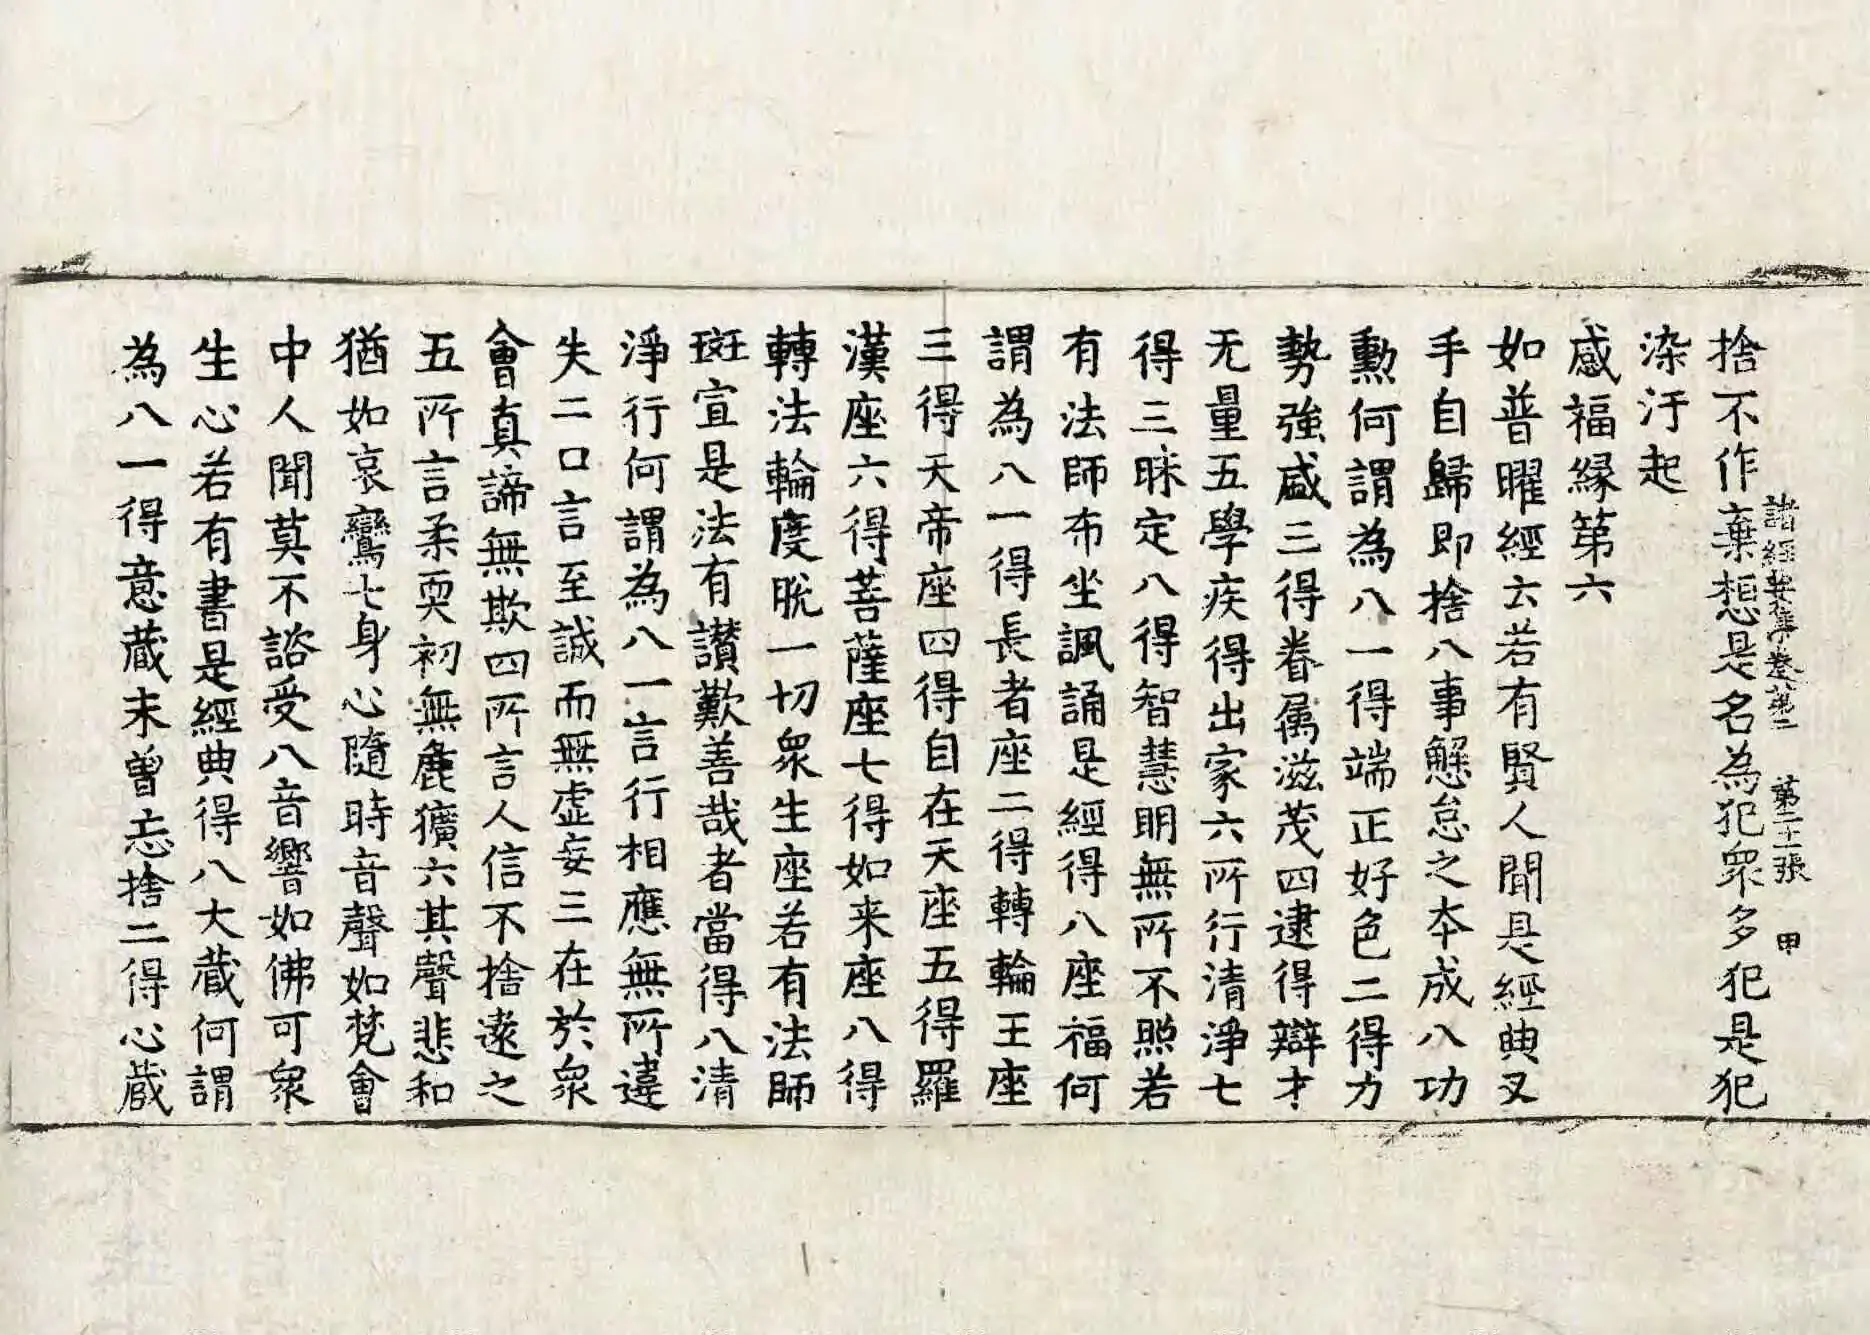 捨不作棄想是名為犯衆多犯是犯
諸經要集卷第二 第二十張 甲
染汙起
感福緣第六
如普曜經云若有賢人聞是經典叉
手自歸即捨八事懈怠之本成八功
勲何謂為八一得端正好色二得力
勢強盛三得眷属滋茂四逮得辯才
无量五學疾得出家六所行清淨七
得三昧定八得智慧明無所不照若
有法師布坐諷誦是經得八座福何
謂為八一得長者座二得轉輪王座
三得天帝座四得自在天座五得羅
漢座六得菩薩座七得如来座八得
轉法輪度脱一切衆生座若有法師
班宣是法有讃歎善哉者當得八清
淨行何謂為八一言行相應無所違
失二口言至誠而無虚妄三在於衆
會真諦無欺四所言人信不捨遠之
五所言柔耎初無麁獷六其聲悲和
猶如哀鸞七身心隨時音聲如梵會
中人聞莫不諮受八音響如佛可衆
生心若有書是經典得八大蔵何謂
為八一得意蔵未曾忘捨二得心蔵